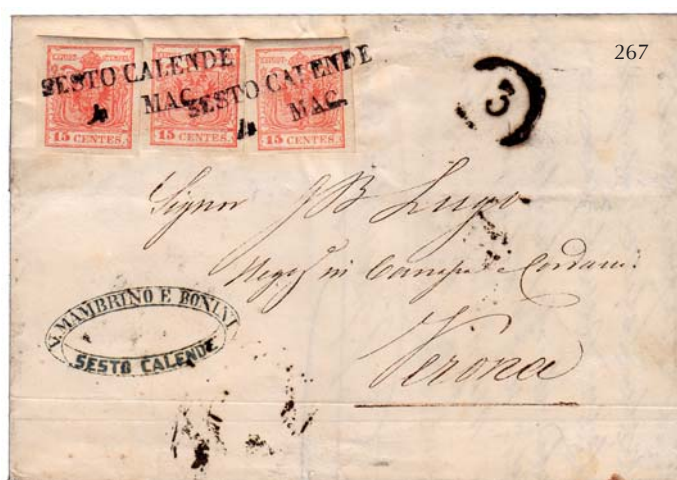 267
SESTO CALENDE
MAG.
4
SESTO CALENDE
MAG.
4
15 CENTES.
15 CENTES.
15 CENTES.
3
Signor J B Lugo
Negoz in Canape e Cordami
Verona
V. MAMBRINO E BONINI
SESTO CALENDE